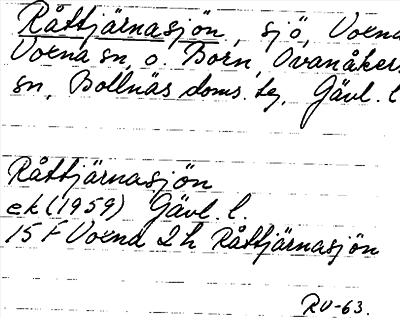 Råttjärnasjön, sjö, Voxna
Voxna sn, o. Born, Ovanåkers
sn, Bollnäs doms. tg, Gävl. l
Råttjärnasjön
ek (1959) Gävl. l.
15 F Voxna 2h Råttjärnasjön
RV-63.